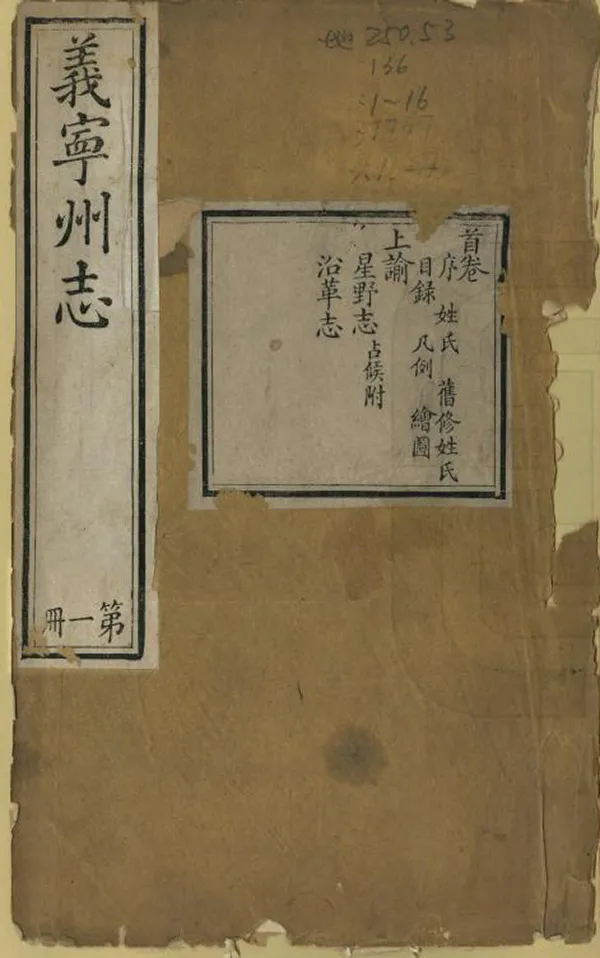 義寧州志
第一冊
首卷
序 姓氏 舊修姓氏
目録 凡例 繪圖
上諭
星野志 占候附
沿革志
250.53
136
:1~16